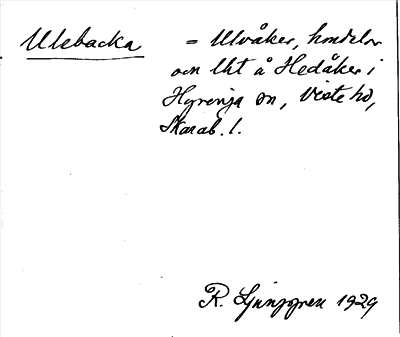 Ulebacka = Ulvåker, hmdelar
och lht å Hedåker i
Hyrenja sn, Viste hd,
Skarab. l.
R. Ljunggren 1929